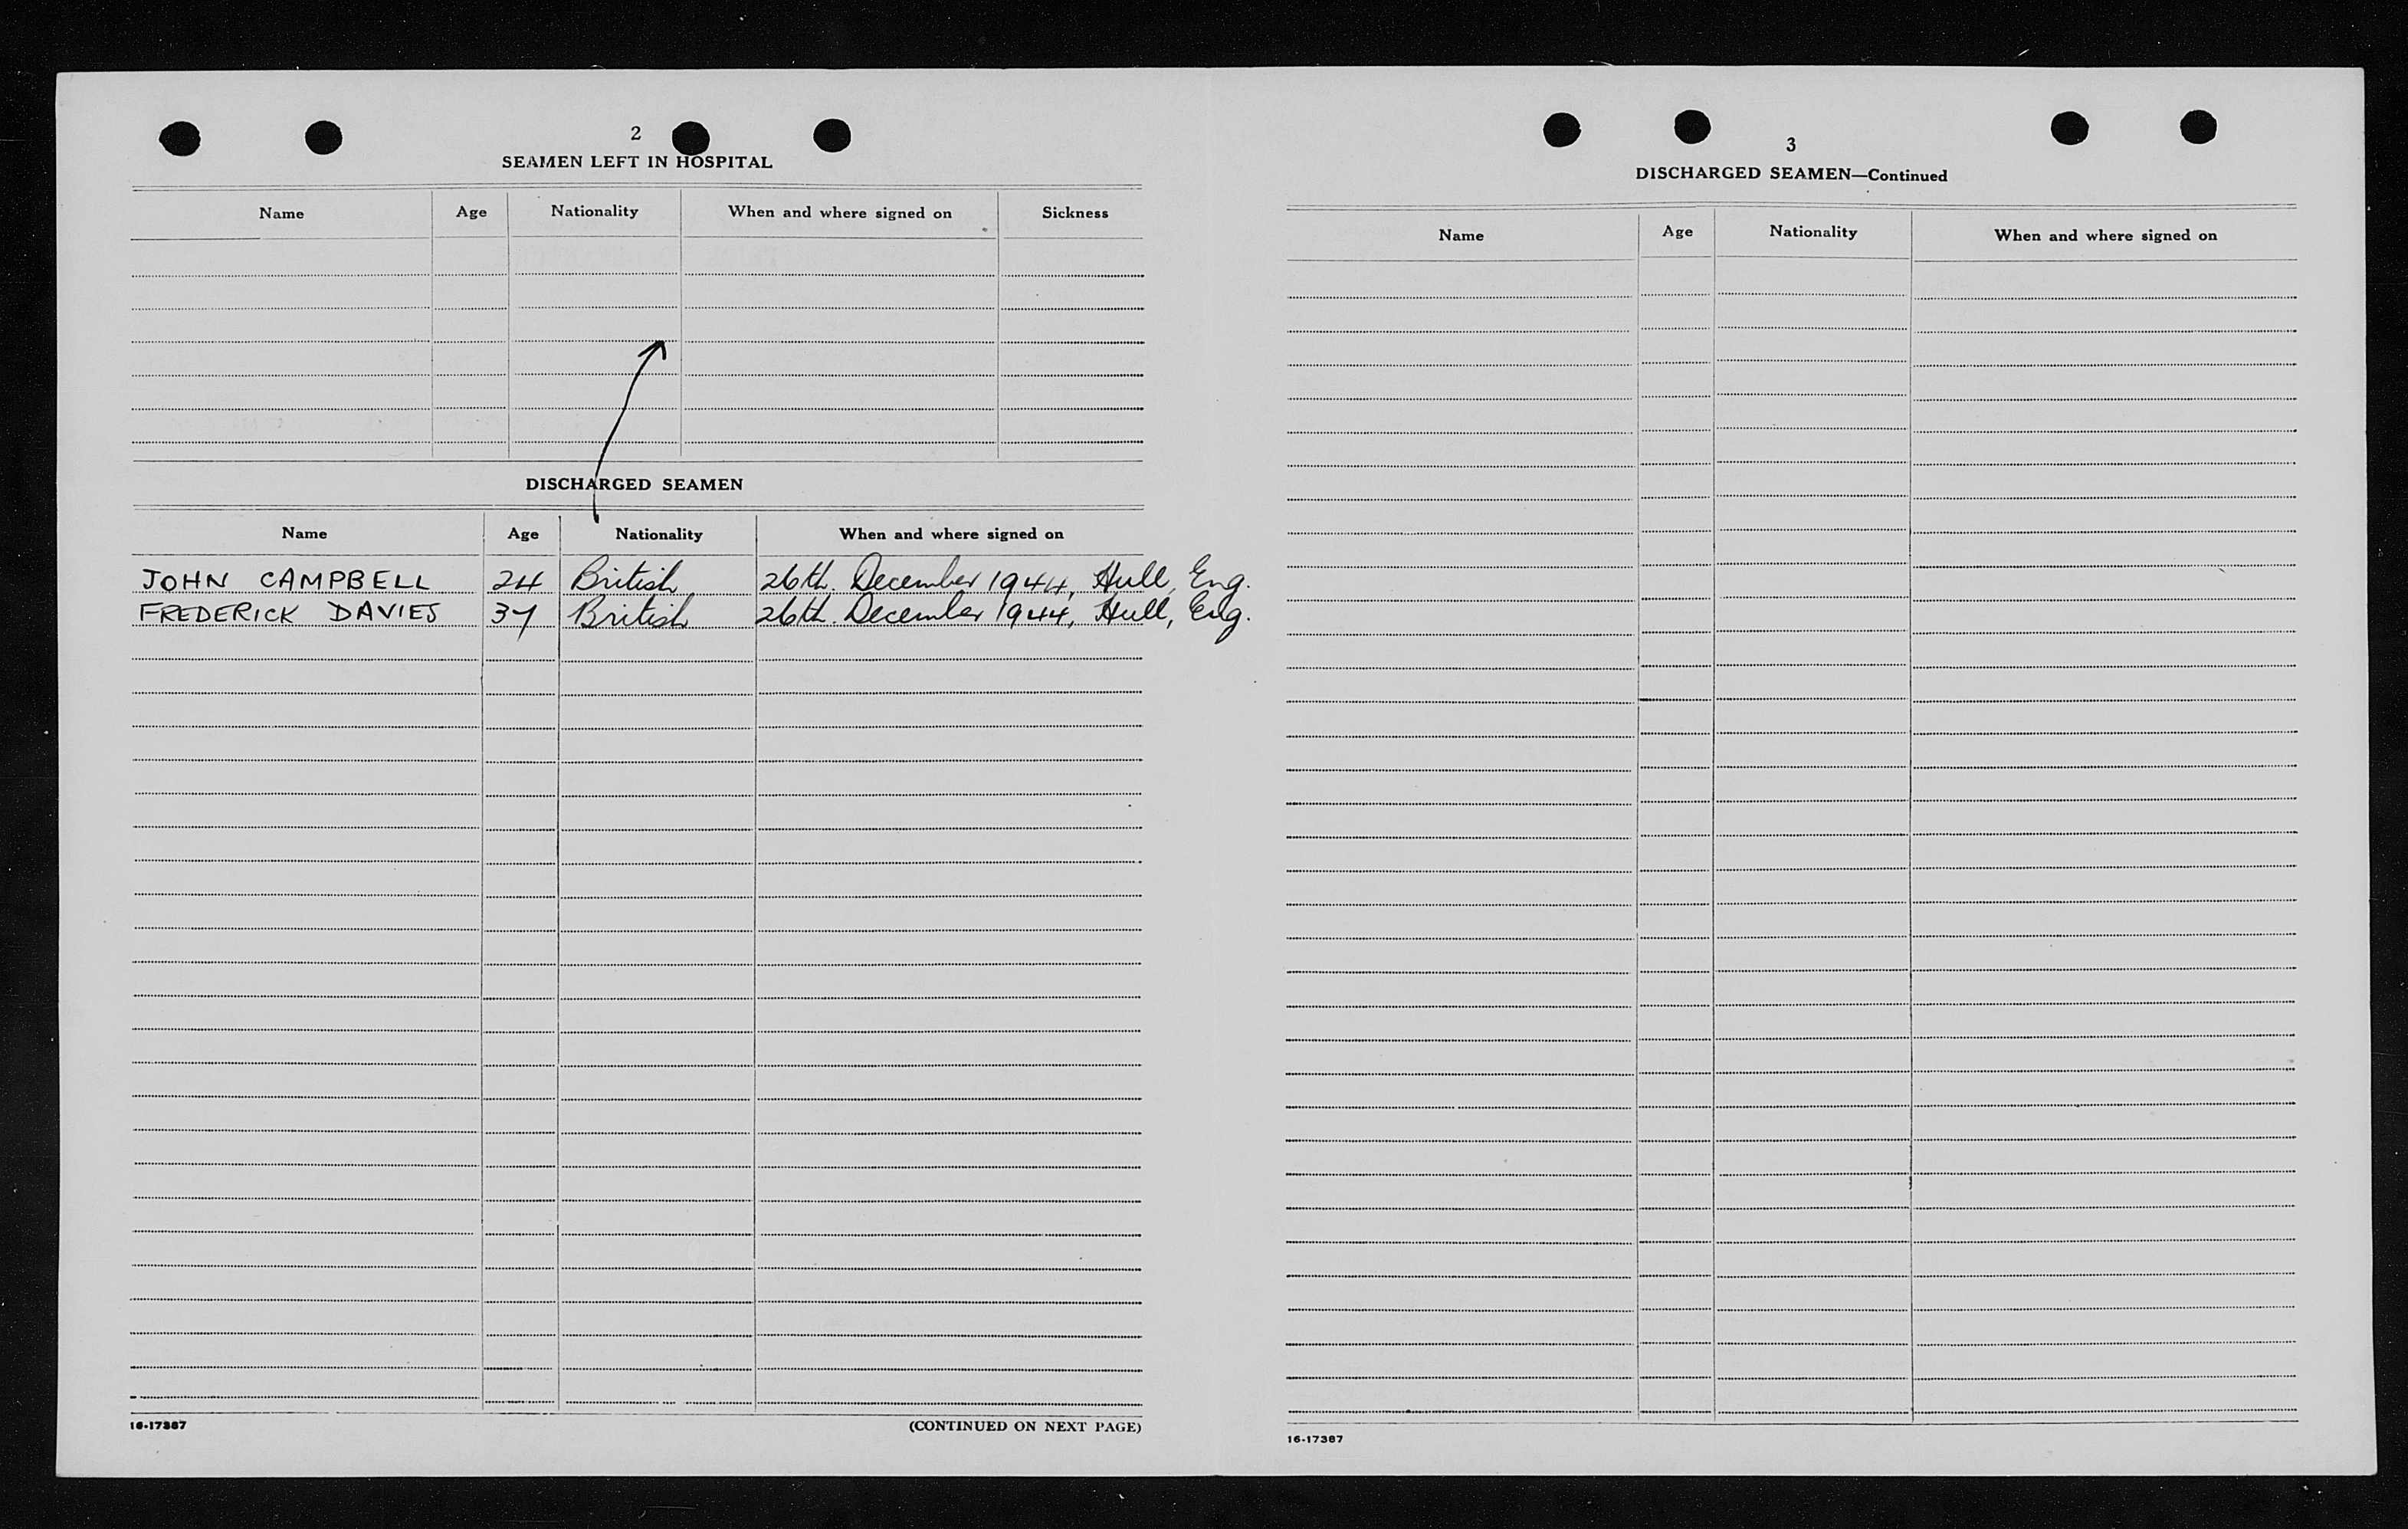 2
SEAMEN LEFT IN HOSPITAL
Name Age Nationality When and where signed on Sickness
DISCHARGED SEAMEN
Name Age Nationality When and where signed on
JOHN CAMPBELL 24 British 26th. December 1944, Hull, Eng.
FREDERICK DAVIES 37 British 26th. December 1944, Hull, Eng.
16-17387 (CONTINUED ON NEXT PAGE)
3
DISCHARGED SEAMEN—Continued
Name Age Nationality When and where signed on
16-17387